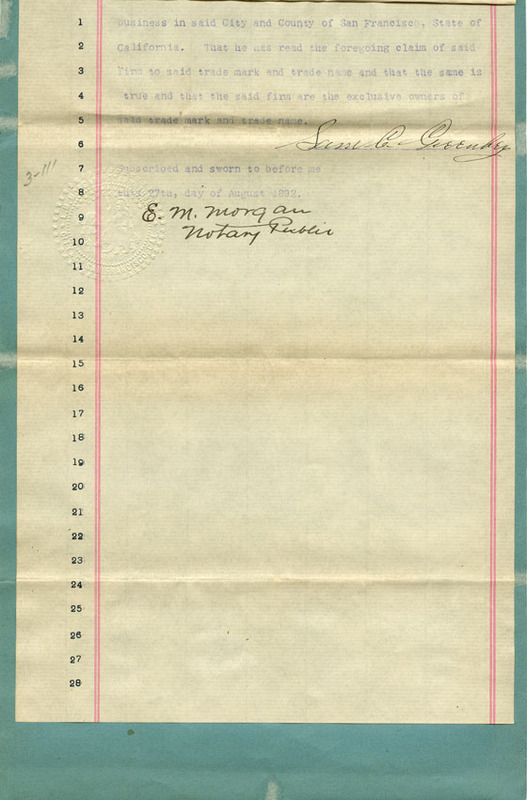 1 business in said City and County of San Francisco, State of
2 California. That he has read the foregoing claim of said
3 Firm to said trade mark and trade name and that the same is
4 true and that the said firm are the exclusive owners of
5 said trade mark and trade name.
6 Sam C.
7 Subscribed and sworn to before me
3-111
8 this 27th, day of August 1892.
9 E. M. Morgan
10 Notary Public
11
12
13
14
15
16
17
18
19
20
21
22
23
24
25
26
27
28